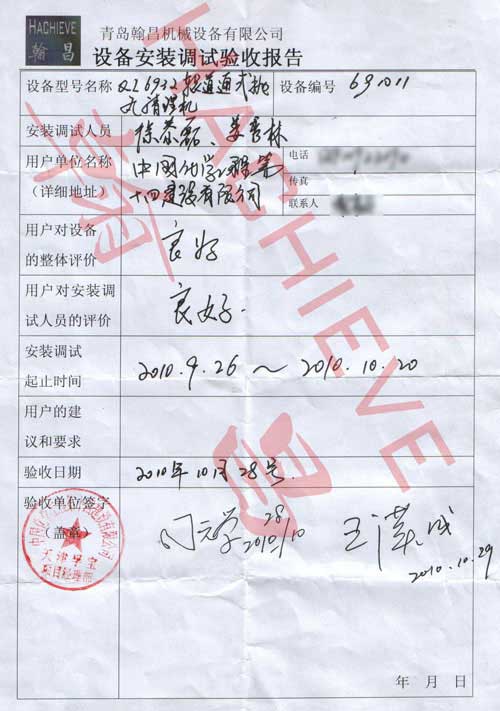 HACHIEVE
翰昌
青岛翰昌机械设备有限公司
设备安装调试验收报告
设备型号名称 Q26932辊道通式抛
丸清理机
设备编号 691011
安装调试人员 徐恭磊、姜秀林
用户单位名称
(详细地址)
中国化学工程第
十四建设有限公司
电话
传真
联系人
用户对设备
的整体评价
良好
用户对安装调
试人员的评价
良好.
安装调试
起止时间
2010.9.26 ~ 2010.10.20
用户的建
议和要求
验收日期 2010年10月28号.
验收单位签字
(盖章)
28
2010/10
2010.10.29
项目经理部
年 月 日
HACHIEVE
翰
昌